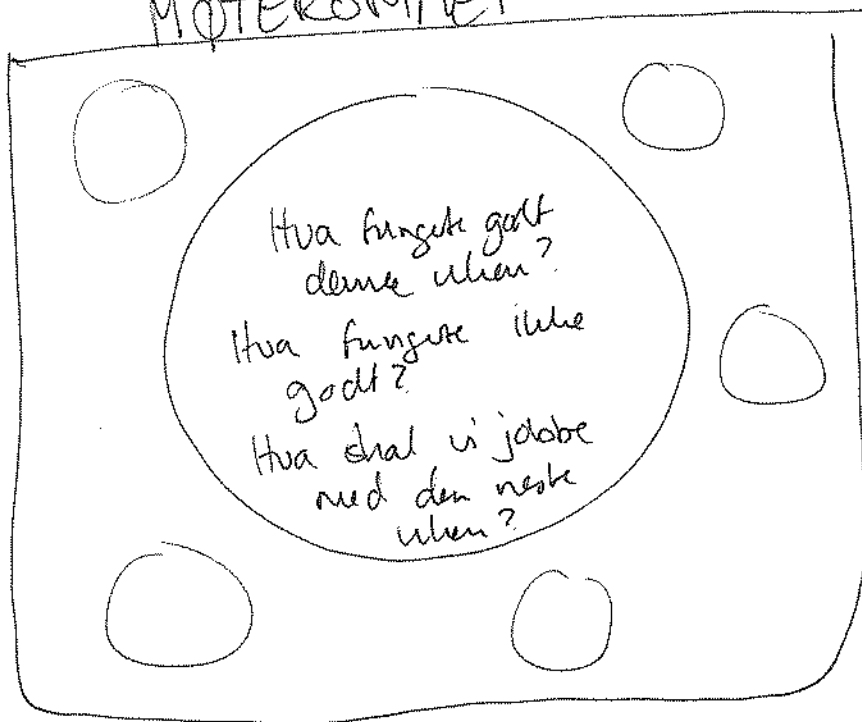 MØTEROMMET
Hva fungerte godt
denne uken?
Hva fungerte ikke
godt?
Hva skal vi jobbe
med den neste
uken?